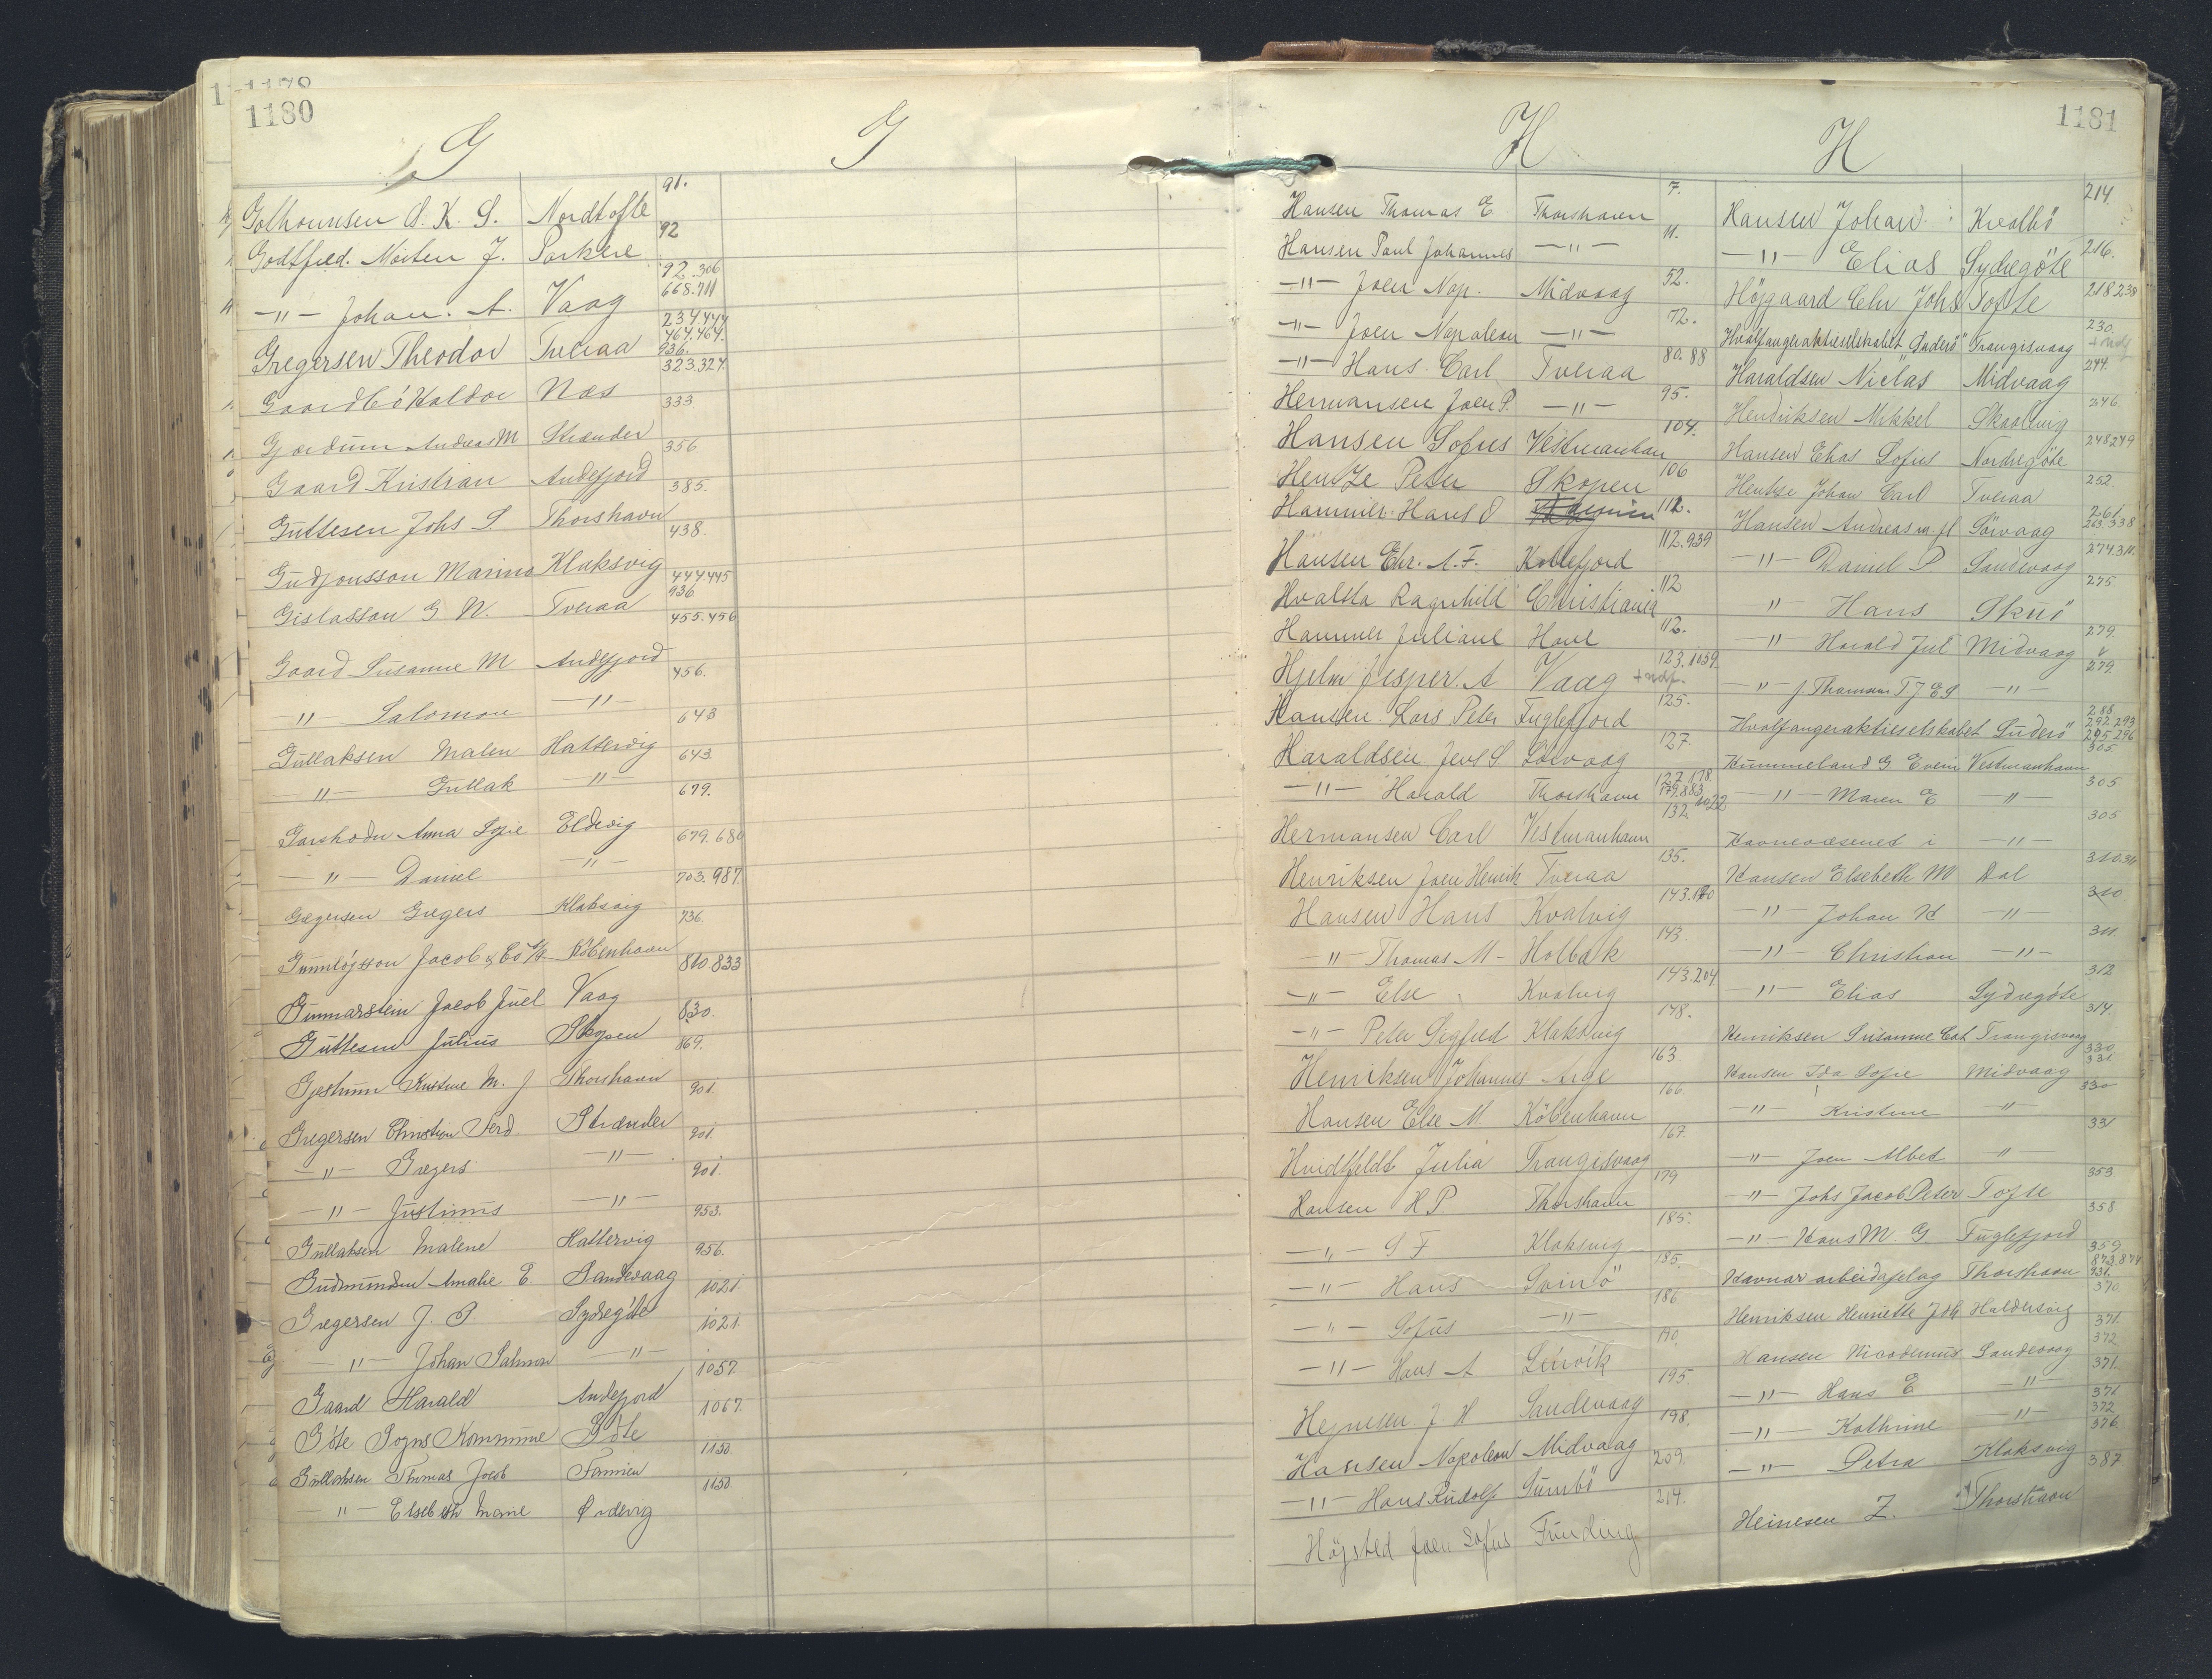 1180
G G
91.
Golhounsen S. K. S. Nordtofte
92
Godtfred. Morten J. Porkere
92.306
668.711
—"— Johan. A. Vaag
234 444
464.464.
936.
Gregersen Theodor Tveraa
323.324.
Gaardbö Haldor Næs
333
Gjærdum Andreas M Strænder
356
Gaard Kristian Andefjord
385.
Guttesen Johs S. Thorshavn
438.
Gudjonsson Marino Klaksvig
444.445
936
Gislasson G. N. Tveraa
455.456
Gaard Susanne M Andefjord
456.
—"— Salomon —"—
643
Gullaksen Malen Hattervig
643.
—"— Gullak "
679.
Garshodn Anna Sofie Eldevig
679.680
—"— Daniel —"—
703.987.
Gregersen Gregers Klaksvig
736.
Gunnlögsson Jacob & Co A/S København
810 833
Gunnarstein Jacob Juel Vaag
830.
Guttesen Julius Skopen
869.
Gjestrum Kristine M. J Thorshavn
901.
Gregersen Christian Ferd Strænder
901.
—"— Gregers —"—
901.
—"— Justinus —"—
953.
Gullaksen Malene Hattervig
956.
Gudmundsen Amalie E. Sandevaag
1021.
Gregersen J. P Sydregöte
1021.
—"— Johan Salmon —"—
1057.
Gaard Harald Andefjord
1067.
Göte Sogns Kommune Göte
1150.
Gullaksen Thomas Jacob Famien
1150.
—"— Elsebeth Marie Ördevig
1181
H H
7.
Hansen Thomas E. Thorshavn
11.
Hansen Poul Johannes —"—
52.
—"— Joen Nap. Midvaag
72.
—"— Joen Napoleon —"—
80.88
—"— Hans Carl Tveraa
95.
Hermansen Joen P. —"—
104.
Hansen Sofus Vestmanhavn
106
Hentze Peter Skopen
112.
Hammer Hans D
112.939
Hansen Chr. A. F. Kollefjord
112
Hvalsla Ragnhild Christiania
112.
Hammer Juliane Hove
123.1059.
Hjelm Jesper. A Vaag
125.
Hansen Lars Peter Fuglefjord
127.
Haraldsen Jens S Sörvaag
122.178
179.883
1022
—"— Harald Thorshavn
132
Hermansen Carl Vestmanhavn
135.
Henriksen Joen Henrik Tveraa
143.170
Hansen Hans Kvalvig
143.
—"— Thomas M— Holbæk
143.204
—"— Else Kvalvig
148.
—"— Peter Sigfred Klaksvig
163.
Henriksen Johannes Arge
166.
Hansen Else M. København
167.
Hvidtfeldt Julia Trangisvaag
179
Hansen H P. Thorshavn
185.
—"— S F Klaksvig
185.
—"— Hans Svinö
186
—"— Sofus —"—
190.
—"— Hans A Leirvik
195.
Hejnesen J. H Sandevaag
198.
Hansen Napoleon Midvaag
209.
—"— Hans Rudolf Sumbö
214.
Höjsted Joen Sofus Funding
214.
Hansen Johan Kvalbö
216.
—"— Elias Sydregöte
218 238
Höjgaard Chr Johs Tofte
230.
Hvalfangeraktieselskabet "Suderö" Trangisvaag
244.
Haraldsen Niclas Midvaag
246.
Hendriksen Mikkel Skaalevig
248 249
Hansen Elias Sofus Nordregöte
252.
Hentze Johan Carl Tveraa
261.
263.338
Hansen Andreas m. fl Sörvaag
274 311.
—"— Daniel P Sandevaag
275.
" Hans Skuö
279.
" Harald Jul Midvaag
279.
—"— J Thomsen T J E S —"—
288.
292.293
295 296
Hvalfangeraktieselskabet Suderö
305
Hummeland G Evein Vestmanhavn
305
—"— Maren E "
305
Havnevæsenet i —"—
310.311
Hansen Elsebeth M Dal
310
—"— Johan H —"—
311
—"— Christian —"—
312
—"— Elias Sydregöte
314.
Henriksen Susanne Cat Trangisvaag
330
331
Hansen Ida Sofie Midvaag
330
—"— Kristine "
331
—"— Joen Albet "
353
—"— Johs Jacob Peter Tofte
358
—"— Hans M. G. Fuglefjord
359.
873.874
931.
Havnar arbeidafelag Thorshavn
370.
Henriksen Henriette J d H Haldersvig
371.
372
Hansen Nicodemus Sandevaag
371.
—"— Hans E —"—
371
372
—"— Kathrine —"—
376.
—"— Petra Klaksvig
387
Heinesen Z. Thorshavn